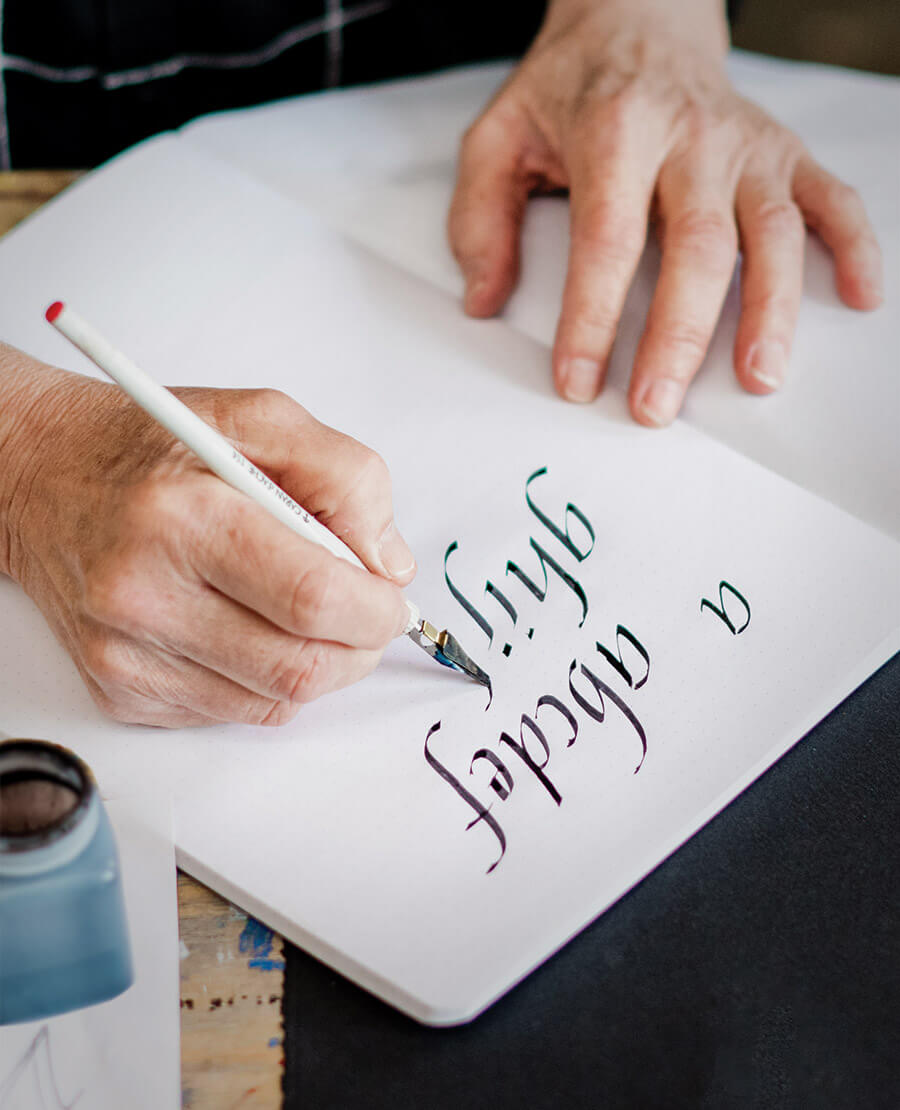 a abcdef
ghij
CARAN D'ACHE